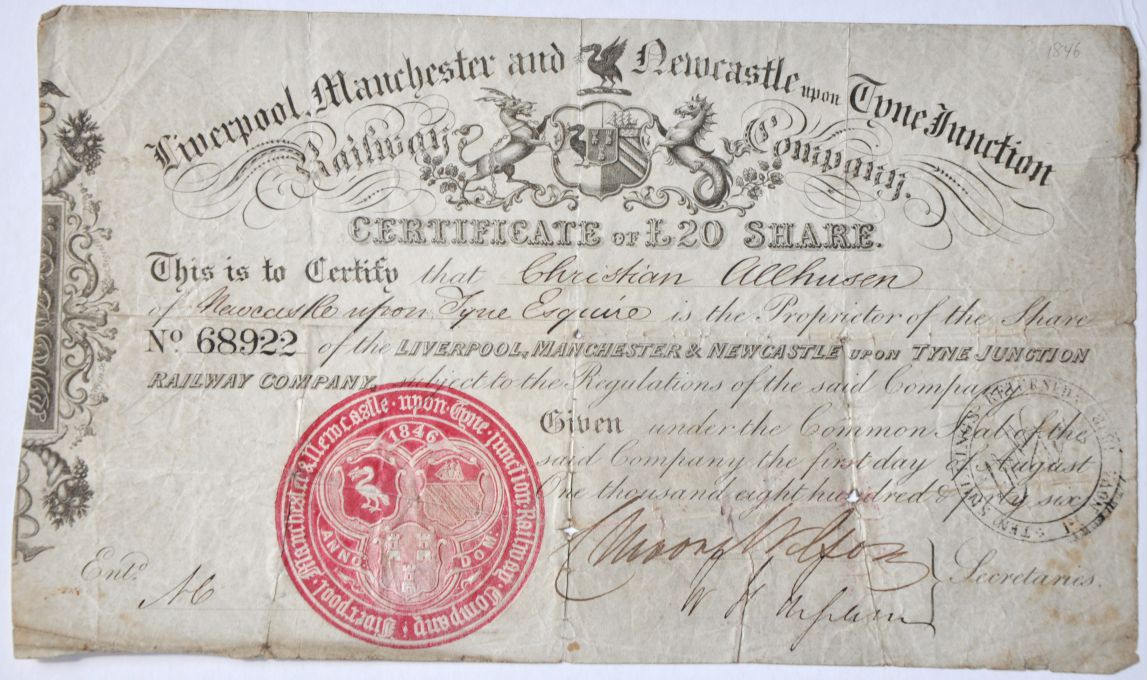 1846
Liverpool, Manchester and Newcastle upon Tyne Junction
Railway Company.
CERTIFICATE OF £20 SHARE.
This is to Certify that Christian Allhusen
of Newcastle upon Tyne Esquire is the Proprietor of the Share
No 68922 of the LIVERPOOL, MANCHESTER & NEWCASTLE UPON TYNE JUNCTION
RAILWAY COMPANY, subject to the Regulations of the said Company.
Given under the Common Seal of the
said Company the first day of August
One thousand eight hundred & forty six
Liverpool · Manchester & Newcastle · upon · Tyne · Junction · Railway · Company
1846
ANNO DOM.
Entd.
Secretaries.